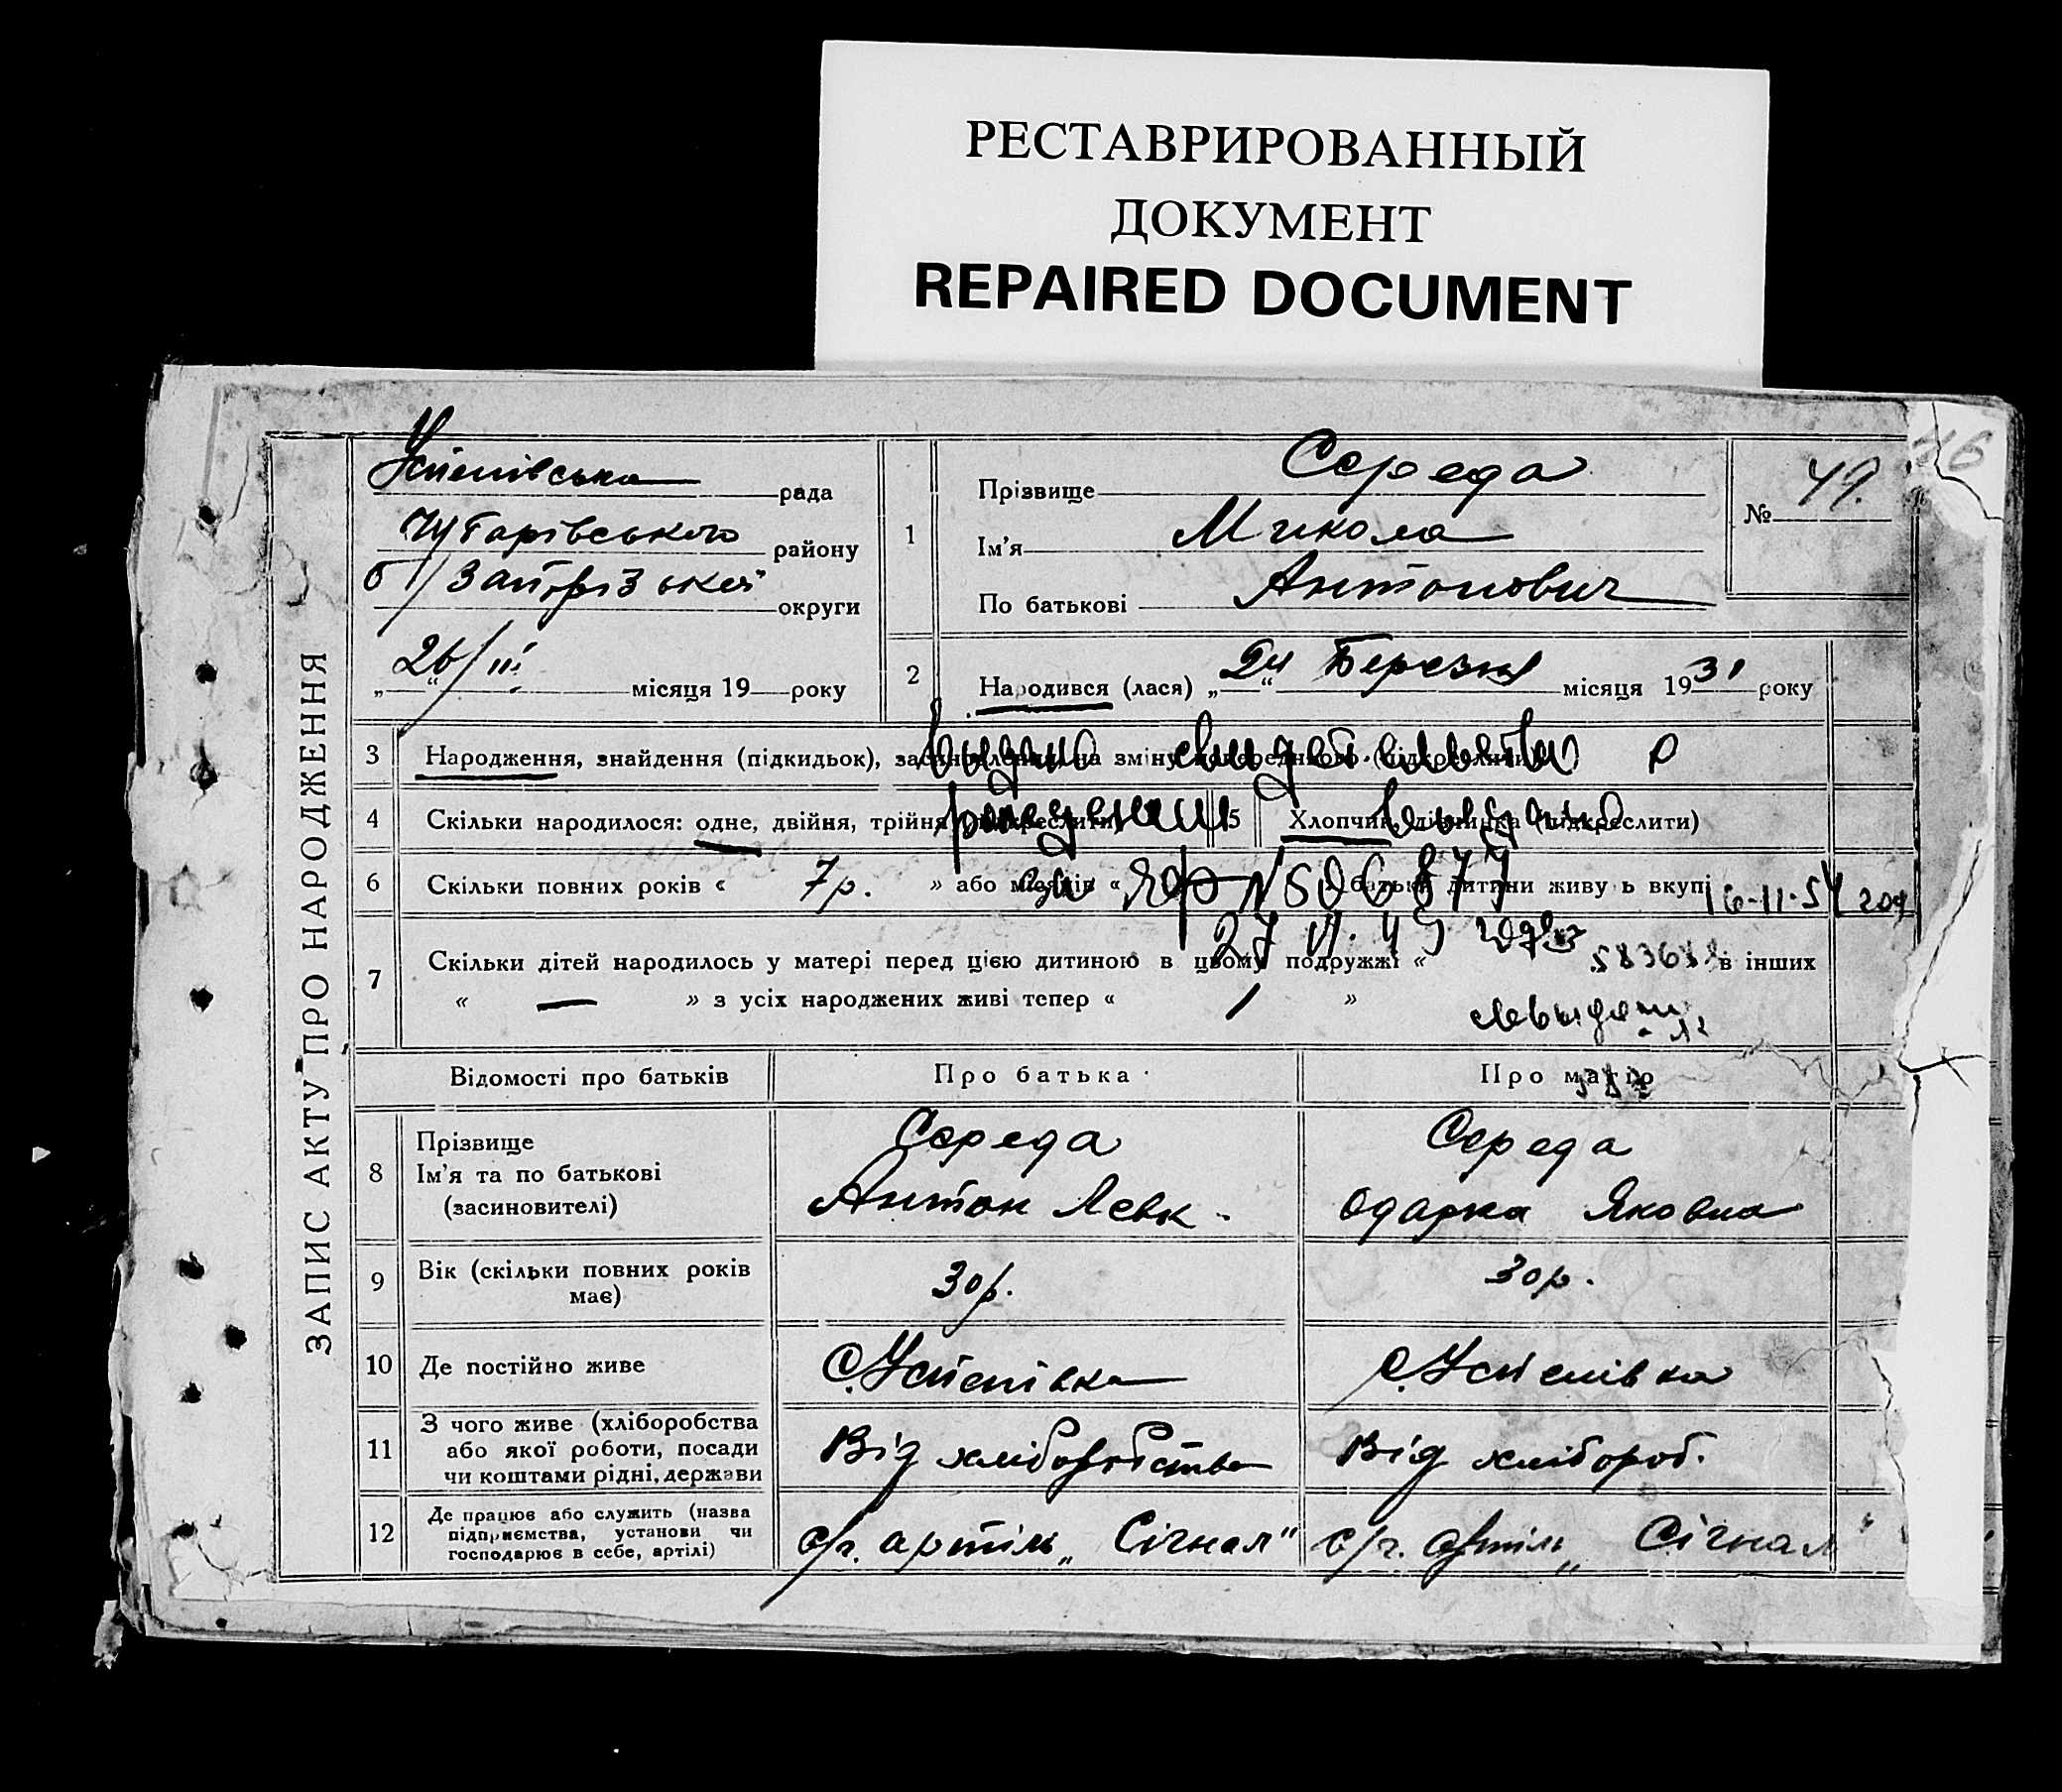 РЕСТАВРИРОВАННЫЙ
ДОКУМЕНТ
REPAIRED DOCUMENT
ЗАПИС АКТУ ПРО НАРОДЖЕННЯ
Успенівська рада
району
округи
26/III місяця 19 року
1
Прізвище Середа
Ім'я Микола
По батькові Антонович
№ 49.
46
2
Народився (лася) „ 24 “ Березня місяця 1931 року
3 Народження, знайдення (підкидьок), на зміну
4 Скільки народилося: одне, двійня, трійня
5 Хлопчик, (підкреслити)
6 Скільки повних років « 7р. » або місяців « батьки дитини живуть вкупі
16-11-54
27 VI. 49
7 Скільки дітей народилось у матері перед цією дитиною в цьому подружжі « в інших
« — » з усіх народжених живі тепер « 1 »
Відомості про батьків
Про батька
Про матір
8 Прізвище
Ім'я та по батькові
(засиновителі)
Середа
Антон Левк.
Середа
Одарка Яковна
9 Вік (скільки повних років
має)
30р.
30р.
10 Де постійно живе
С.Успенівка
С.Успенівка
11 З чого живе (хліборобства
або якої роботи, посади
чи коштами рідні, держави
Від хліборобства
Від хлібороб.
12 Де працює або служить (назва
підприємства, установи чи
господарює в себе, артілі)
с/г. артіль „Сігнал"
с/г. артіль „Сігнал"